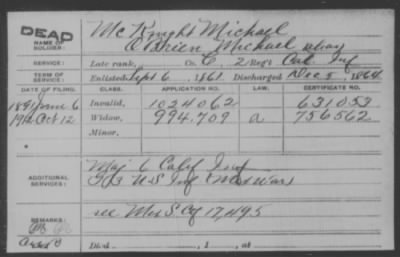 DEAD
McKnight Michael
NAME OF SOLDIER: O'Brien, Michael alias
SERVICE: Late rank, Co. C, 2 Reg't Cal Inf
TERM OF SERVICE: Enlisted Sept 6, 1861 Discharged Dec 5, 1864
DATE OF FILING. CLASS. APPLICATION NO. LAW. CERTIFICATE NO.
1891 June 6 Invalid, 1024062 631053
1912 Oct 12 Widow, 994.709 a 756562
Minor,
ADDITIONAL SERVICES: 6 Calif Inf
U S Inf (Mex War)
REMARKS: see Mex S Cf 17,495
Died , 1 , at